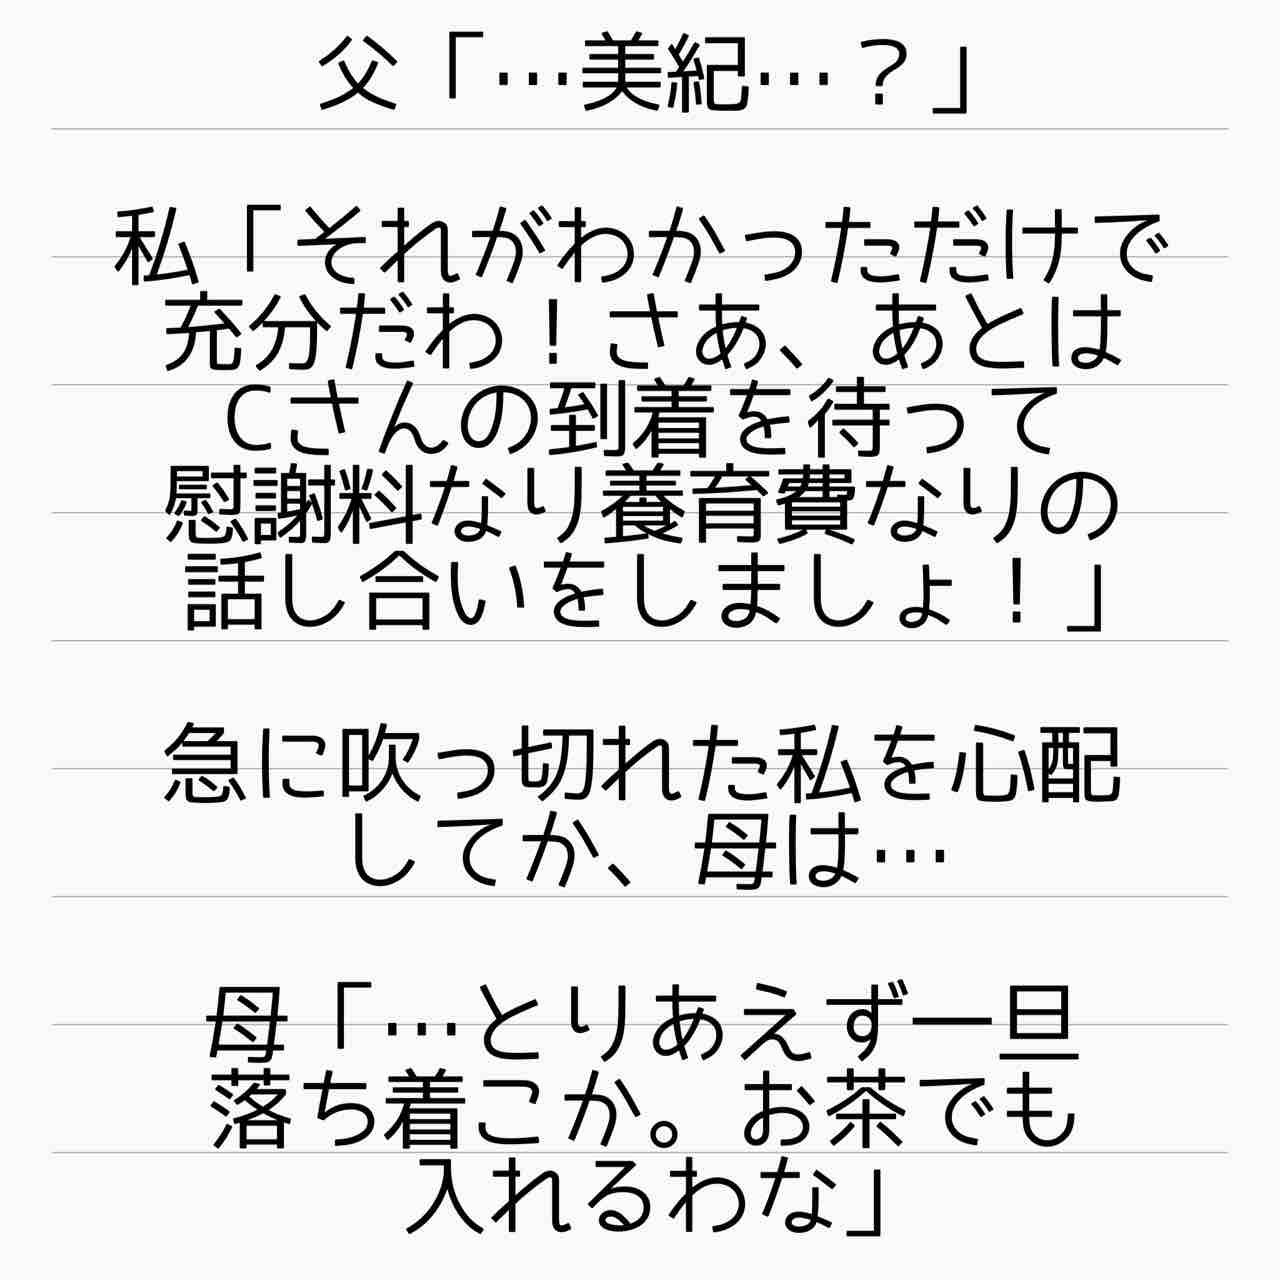 父「…美紀…？」
私「それがわかっただけで
充分だわ！さあ、あとは
Cさんの到着を待って
慰謝料なり養育費なりの
話し合いをしましょ！」
急に吹っ切れた私を心配
してか、母は…
母「…とりあえず一旦
落ち着こか。お茶でも
入れるわな」